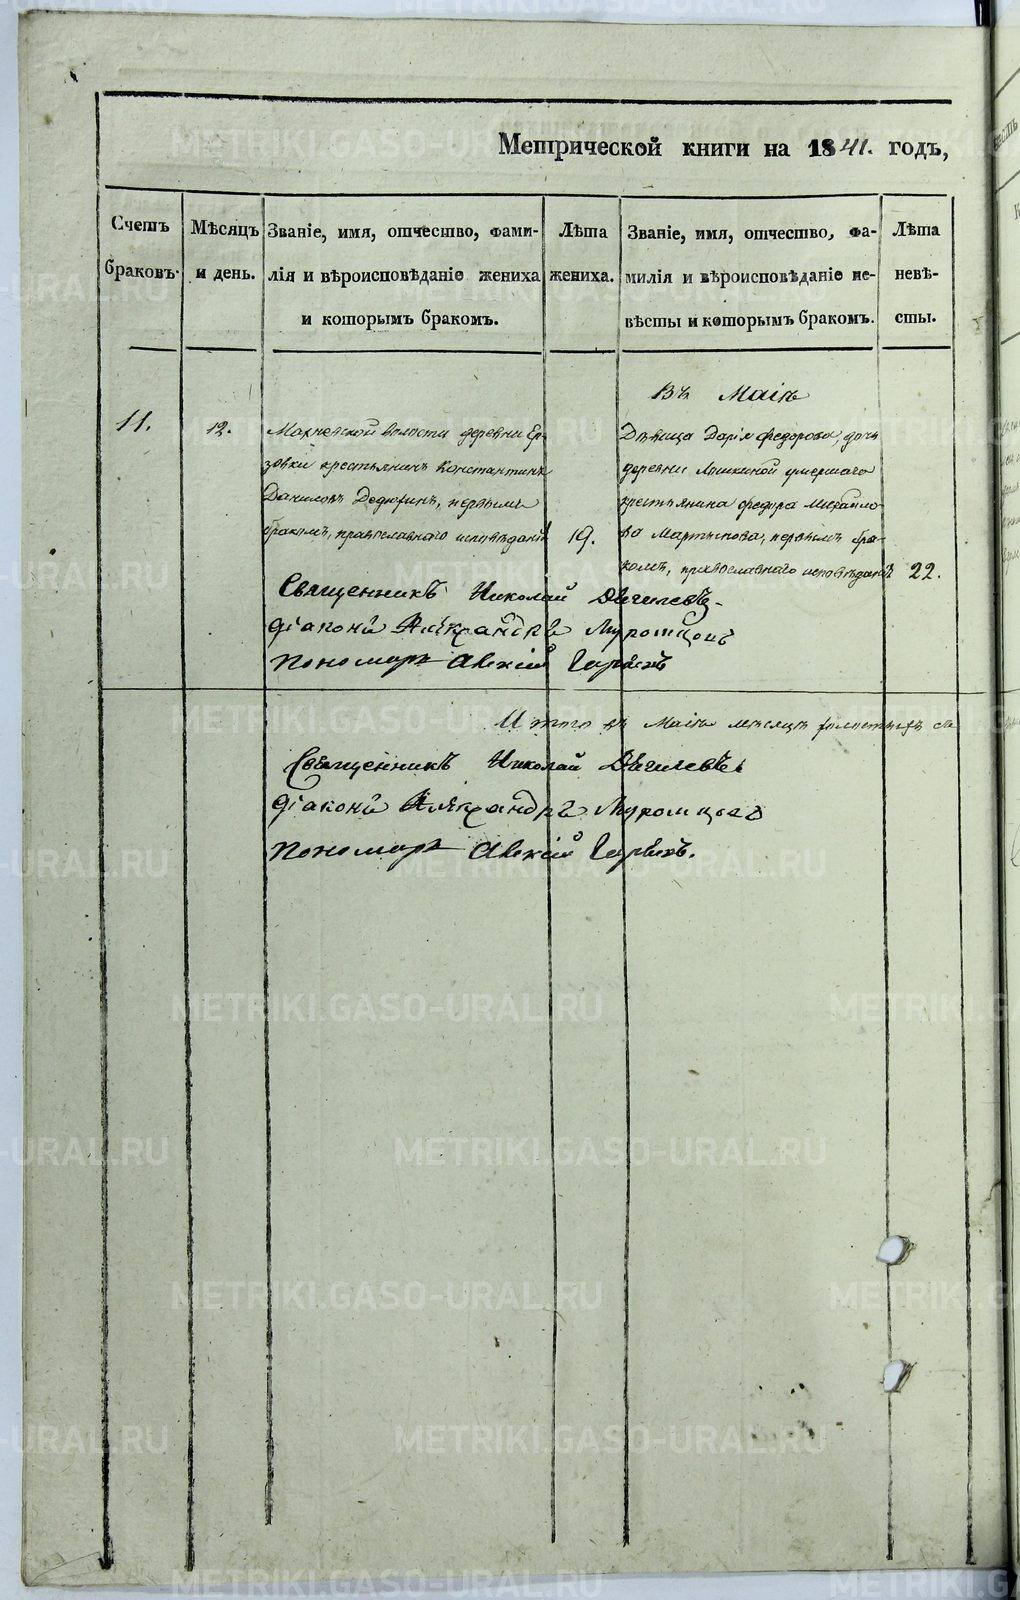 Метрической книги на 1841. годъ,
Счетъ браковъ.
Мѣсяцъ и день.
Званіе, имя, отчество, фами-
лія и вѣроисповѣданіе жениха
и которымъ бракомъ.
Лѣта жениха.
Званіе, имя, отчество, фа-
милія и вѣроисповѣданіе не-
вѣсты и которымъ бракомъ.
Лѣта невѣ-
сты.
Въ Маіѣ
11.
12.
Махневской волости деревни Ер-
зовки крестьянинъ Константинъ
Даниловъ Дедюхинъ, первымъ
бракомъ, православнаго исповѣданія
19.
Дѣвица Дарія Федорова, дочь
деревни умершаго
крестьянина Федора Михайло-
ва Мартынова, первымъ бра-
комъ, православнаго исповѣданія
22.
Священникъ Николай
Діаконъ Александръ Муромцовъ
Пономарь
Итого въ Маіѣ мѣсяцѣ
Священникъ Николай
Діаконъ Александръ Муромцовъ
Пономарь
METRIKI.GASO-URAL.RU